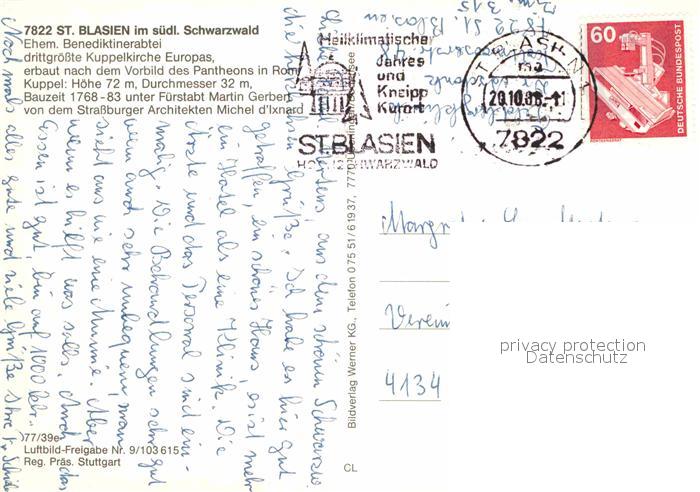 7822 ST. BLASIEN im südl. Schwarzwald
Ehem. Benediktinerabtei
drittgrößte Kuppelkirche Europas,
erbaut nach dem Vorbild des Pantheons in Rom
Kuppel: Höhe 72 m, Durchmesser 32 m,
Bauzeit 1768-83 unter Fürstabt Martin Gerbert
von dem Straßburger Architekten Michel d'Ixnard
Heilklimatischer
Jahres
und
Kneipp
Kurort
ST. BLASIEN
HOCHSCHWARZWALD
ST. BLASIEN 1
ma
20.10.86.-11
7822
60
DEUTSCHE BUNDESPOST
7822 St. Blasien
aus dem schönen Schwarzw.
die herzlichen Grüße. Ich habe es hier gut
getroffen, ein schönes Haus, es ist mehr
ein Hotel als eine Klinik. Die
Ärzte und das Personal sind ein-
malig. Die Behandlungen sehr gut
wenn auch sehr unbequem, man
sieht aus wie eine Mumie. Aber
wenn es hilft was solls. Auch das
Essen ist gut, bin auf 1000 kal.
Noch mals alles gute und viele Grüße Ihre
Bildverlag Werner KG., Telefon 0 75 51/6 19 37,
Margr
Verein
4134
privacy protection
Datenschutz
77/39e
Luftbild-Freigabe Nr. 9/103 615
Reg. Präs. Stuttgart
CL